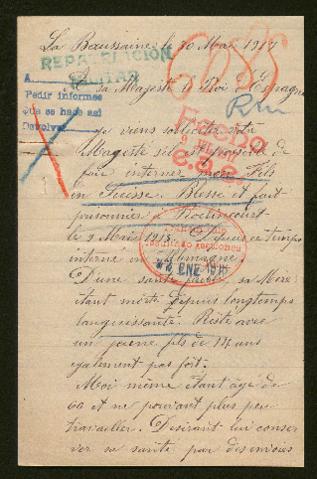 La Baussaine, le 10 Mai 1917
REPATRIACION
MILITAR
A
Sa Majesté le Roi d'Espagne
Pedir informes
que se hace así
Devolver
Je viens solliciter votre
Majesté s'il est possible de
faire interner mon Fils
en Suisse. Blessé et fait
prisonnier à Roclincourt
le 9 Mai 1915. Depuis ce temps
interné en Allemagne
D'une santé faible, sa Mère
étant morte depuis longtemps
languissante. Reste avec
un jeune fils de 14 ans
également pas fort.
Moi même étant âgé de
60 et ne pouvant plus peu
travailler. Désirant lui conser
ver sa santé par des envoies
ENE 1918